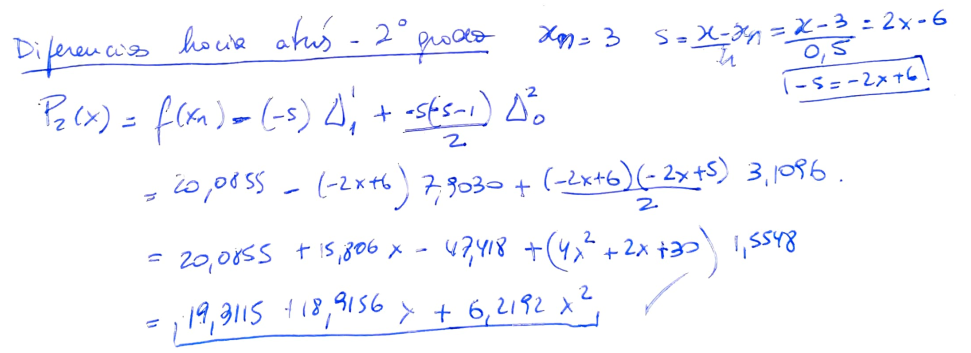 Diferencias hacia atrás - 2º grado xₙ = 3 s = (x-xₙ)/h = (x-3)/0,5 = 2x-6
-s = -2x+6
P₂(x) = f(xₙ) - (-s) Δ¹₁ + (-s(-s-1))/2 Δ²₀
= 20,0855 - (-2x+6) 7,9030 + ((-2x+6)(-2x+5))/2 3,1096.
= 20,0855 + 15,806 x - 47,418 + (4x² + 2x + 30) 1,5548
= 19,3115 + 18,9156 x + 6,2192 x² ✓